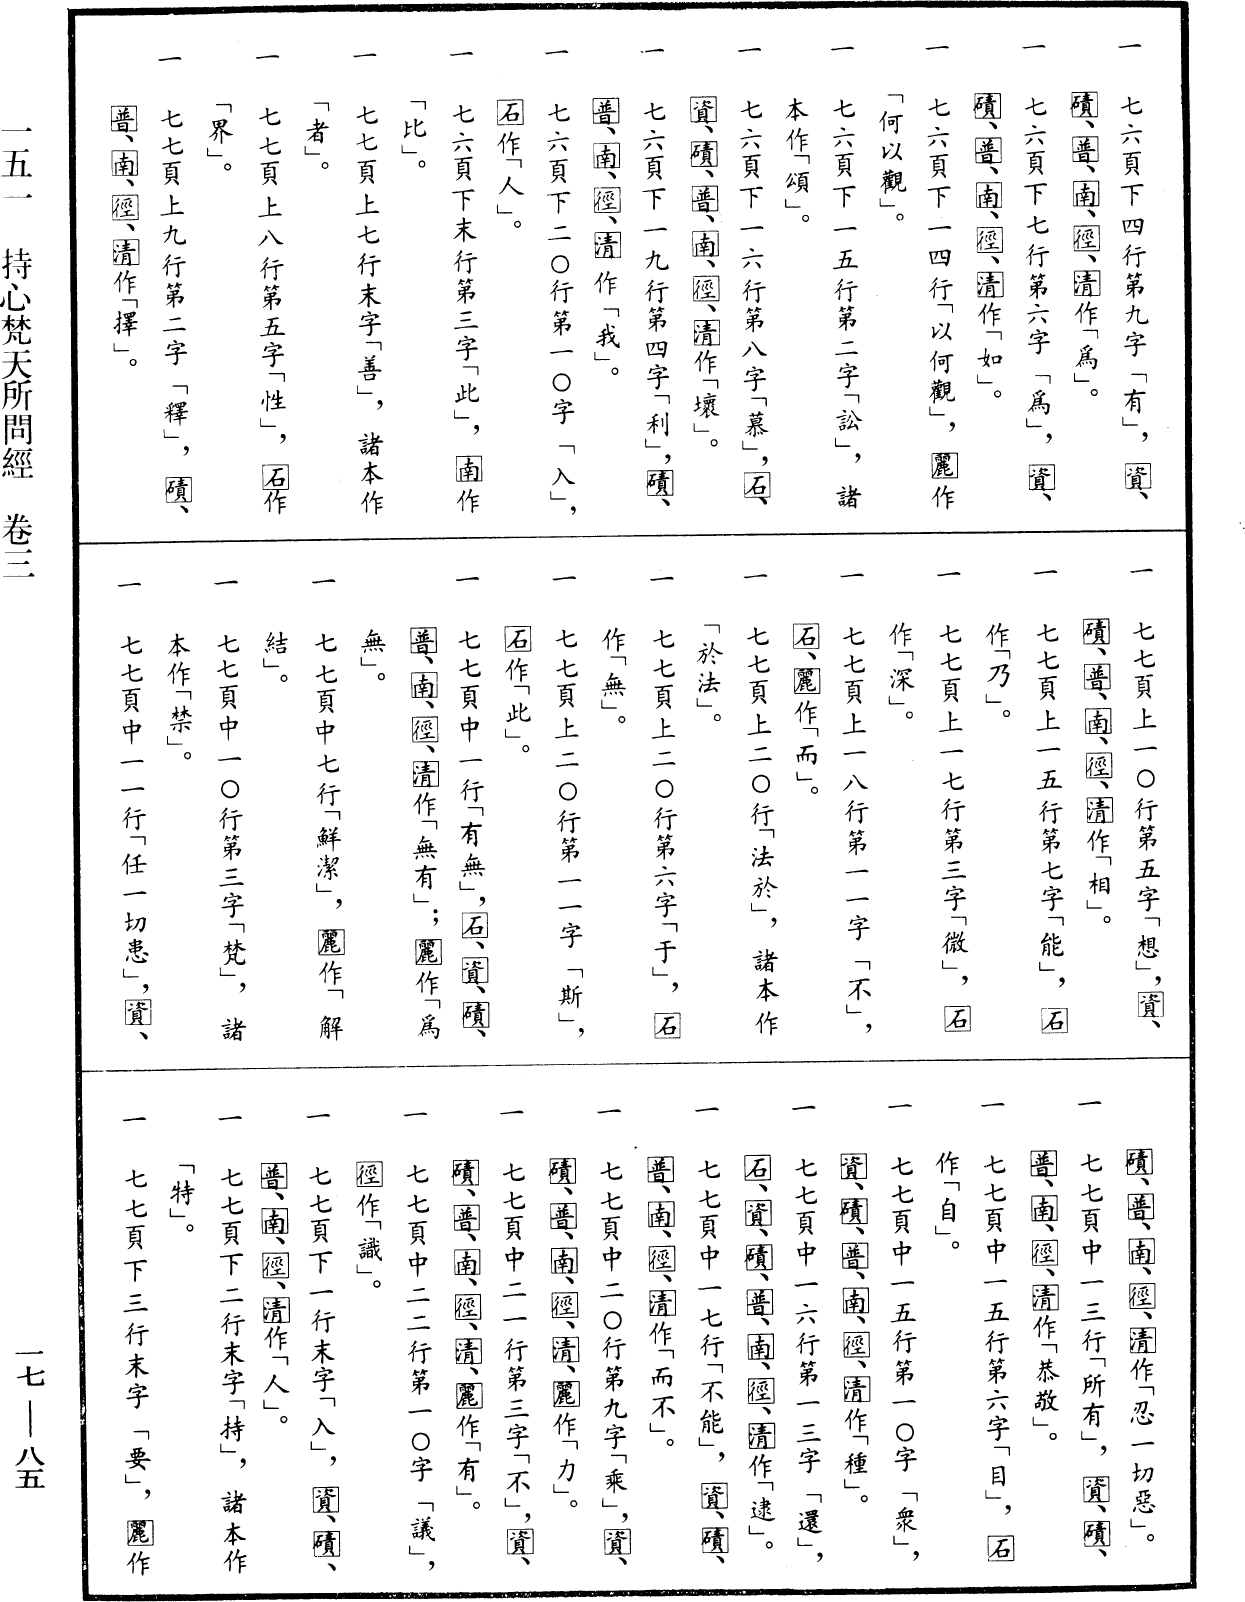 一　七六頁下四行第九字「有」，資、
磧、普、南、徑、清作「爲」。
一　七六頁下七行第六字「爲」，資、
磧、普、南、徑、清作「如」。
一　七六頁下一四行「以何觀」，麗作
「何以觀」。
一　七六頁下一五行第二字「訟」，諸
本作「頌」。
一　七六頁下一六行第八字「慕」，石、
資、磧、普、南、徑、清作「壞」。
一　七六頁下一九行第四字「利」，磧、
普、南、徑、清作「我」。
一　七六頁下二〇行第一〇字「入」，
石作「人」。
一　七六頁下末行第三字「此」，南作
「比」。
一　七七頁上七行末字「善」，諸本作
「者」。
一　七七頁上八行第五字「性」，石作
「界」。
一　七七頁上九行第二字「釋」，磧、
普、南、徑、清作「擇」。
一　七七頁上一〇行第五字「想」，資、
磧、普、南、徑、清作「相」。
一　七七頁上一五行第七字「能」，石
作「乃」。
一　七七頁上一七行第三字「微」，石
作「深」。
一　七七頁上一八行第一一字「不」，
石、麗作「而」。
一　七七頁上二〇行「法於」，諸本作
「於法」。
一　七七頁上二〇行第六字「于」，石
作「無」。
一　七七頁上二〇行第一一字「斯」，
石作「此」。
一　七七頁中一行「有無」，石、資、磧、
普、南、徑、清作「無有」；麗作「爲
無」。
一　七七頁中七行「鮮潔」，麗作「解
結」。
一　七七頁中一〇行第三字「梵」，諸
本作「禁」。
一　七七頁中一一行「任一切患」，資、
磧、普、南、徑、清作「忍一切惡」。
一　七七頁中一三行「所有」，資、磧、
普、南、徑、清作「恭敬」。
一　七七頁中一五行第六字「目」，石
作「自」。
一　七七頁中一五行第一〇字「衆」，
資、磧、普、南、徑、清作「種」。
一　七七頁中一六行第一三字「還」，
石、資、磧、普、南、徑、清作「逮」。
一　七七頁中一七行「不能」，資、磧、
普、南、徑、清作「而不」。
一　七七頁中二〇行第九字「乘」，資、
磧、普、南、徑、清、麗作「力」。
一　七七頁中二一行第三字「不」，資、
磧、普、南、徑、清、麗作「有」。
一　七七頁中二二行第一〇字「議」，
徑作「識」。
一　七七頁下一行末字「入」，資、磧、
普、南、徑、清作「人」。
一　七七頁下二行末字「持」，諸本作
「特」。
一　七七頁下三行末字「要」，麗作
一五一　持心梵天所問經　卷三
一七——八五